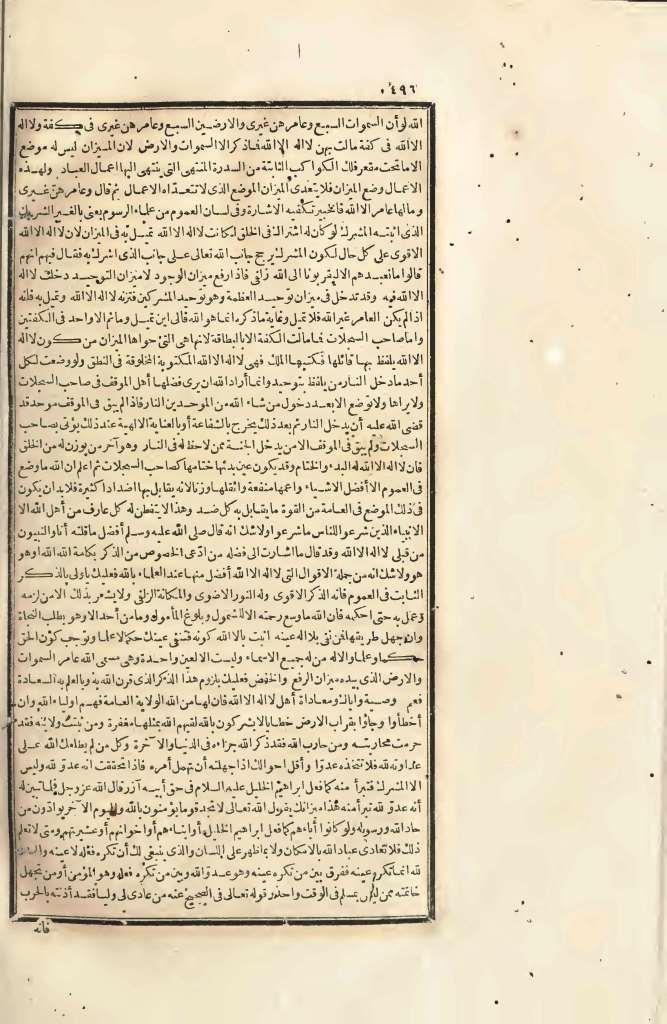 ٤٩٦
الله لو أن السموات السبع وعامرهن غيرى والارضين السبع وعامرهن غيرى فى كفة ولااله
الاالله فى كفة مالت بهن لااله الاالله فماذكر الاالسموات والارض لان الميزان ليس له موضع
الاماتحت مقعر فلك الكواكب الثابتة من السدرة المنتهى التى ينتهى اليها اعمال العباد ولهذه
الاعمال وضع الميزان فلايتعدى الميزان الموضع الذى لاتتعداه الاعمال ثم قال وعامرهن غيرى
ومالها عامر الاالله فالخبير تكفيه الاشارة وفى لسان العموم من علماء الرسوم يعنى بالغير الشريك
الذى اثبته المشرك لو كان له اشتراك فى الخلق لكانت لااله الاالله تميل به فى الميزان لان لااله الاالله
الاقوى على كل حال لكون المشرك يرجح جانب الله تعالى على جانب الذى اشرك به فقال فيهم انهم
قالوا مانعبدهم الاليقربونا الى الله زلفى فاذا رفع ميزان الوجود لاميزان التوحيد دخلت لااله
الاالله فيه وقد تدخل فى ميزان توحيد العظمة وهو توحيد المشركين فتزنه لااله الاالله وتميل به فانه
اذالم يكن العامر غير الله فلاتميل وغاية ماذكره انما هو الله فالى اين تميل وماثم الاواحد فى الكفتين
واما صاحب السجلات فمامالت الكفة الابالبطاقة لانها هى التى حواها الميزان من كون لااله
الاالله يلفظ بها قائلها فكتبها الملك فهى لااله الاالله المكتوبة المخلوقة فى النطق ولو وضعت لكل
أحد مادخل النار من يلفظ بتوحيد وانما أراد الله ان يرى فضلها أهل الموقف فى صاحب السجلات
ولايراها ولاتوضع الابعد دخول من شاء الله من الموحدين النار فاذالم يبق فى الموقف موحد قد
قضى الله عليه أن يدخل النار ثم بعد ذلك يخرج بالشفاعة أو بالعناية الالهية عند ذلك يؤتى بصاحب
السجلات ولم يبق فى الموقف الامن يدخل الجنة ممن لاحظ له فى النار وهو آخر من يوزن له من الخلق
فان لااله الاالله له البدء والختام وقد يكون عين بدئها ختامها كصاحب السجلات ثم اعلم ان الله ماوضع
فى العموم الاأفضل الاشياء واعمها منفعة واثقلها وزنا لانه يقابل بها اضدادا كثيرة فلابد ان يكون
فى ذلك الموضع فى العامة من القوة مايقابل به كل ضد وهذا لايتفطن له كل عارف من أهل الله الا
الانبياء الذين شرعوا للناس ماشرعوا ولاشك انه قال صلى الله عليه وسلم أفضل ماقلته أنا والنبيون
من قبلى لااله الاالله وقد قال مااشارت الى فضله من ادّعى الخصوص من الذكر بكلمة الله الله اوهو
هو ولاشك انه من جملة الاقوال التى لااله الاالله أفضل منها عند العلماء بالله فعليك ياولى بالذكر
الثابت فى العموم فانه الذكر الاقوى وله النور الاضوى والمكانة الزلفى ولايشعر بذلك الامن لزمه
وعمل به حتى احكمه فان الله ماوسع رحمته الاللشمول وبلوغ المأمول ومامن أحد الاوهو يطلب النجاة
وان جهل طريقها فمن نفى بلااله عينه اثبت بالاالله كونه فتنفى عينك حكما لاعلما وتوجب كون الحق
حكما وعلما والاله من له جميع الاسماء وليست الالعين واحدة وهى مسمى الله عامر السموات
والارض الذى بيده ميزان الرفع والخفض فعليك بلزوم هذا الذكر الذى قرن الله به وبالعلم به السعادة
فعم وصية واياك ومعاداة أهل لااله الاالله فان لها من الله الولاية العامة فهم اولياء الله وان
أخطأوا وجاؤا بقراب الارض خطايا لايشركون بالله لقيهم الله بمثلها مغفرة ومن ثبتت ولايته فقد
حرمت محاربته ومن حارب الله فقد ذكر الله جزاءه فى الدنيا والآخرة وكل من لم يطلعك الله على
عداوته لله فلاتتخذه عدوّا وأقل احوالك اذا جهلته أن تهمل أمره فاذا تحققت انه عدو لله وليس
الاالمشرك فتبرأ منه كما فعل ابراهيم الخليل عليه السلام فى حق أبيه آزر قال الله عز وجل فلما تبين له
أنه عدو لله تبرأ منه هذا ميزانك يقول الله تعالى لاتجد قوما يؤمنون بالله واليوم الآخر يوادّون من
حاد الله ورسوله ولو كانوا أباءهم كما فعل ابراهيم الخليل أو ابناءهم أو اخوانهم أو عشيرتهم ومتى لاتعلم
ذلك فلاتعادى عباد الله بالامكان ولابما ظهر على اللسان والذى ينبغى لك أن تكره فعله لاعينه والعدو
لله انما تكره عينه ففرق بين من تكره عينه وهو عدو الله وبين من تكره فعله وهو المؤمن أو من تجهل
خاتمته ممن ليس بمسلم فى الوقت واحذر قوله تعالى فى الصحيح عنه من عادى لى وليا فقد آذنته بالحرب
فانه